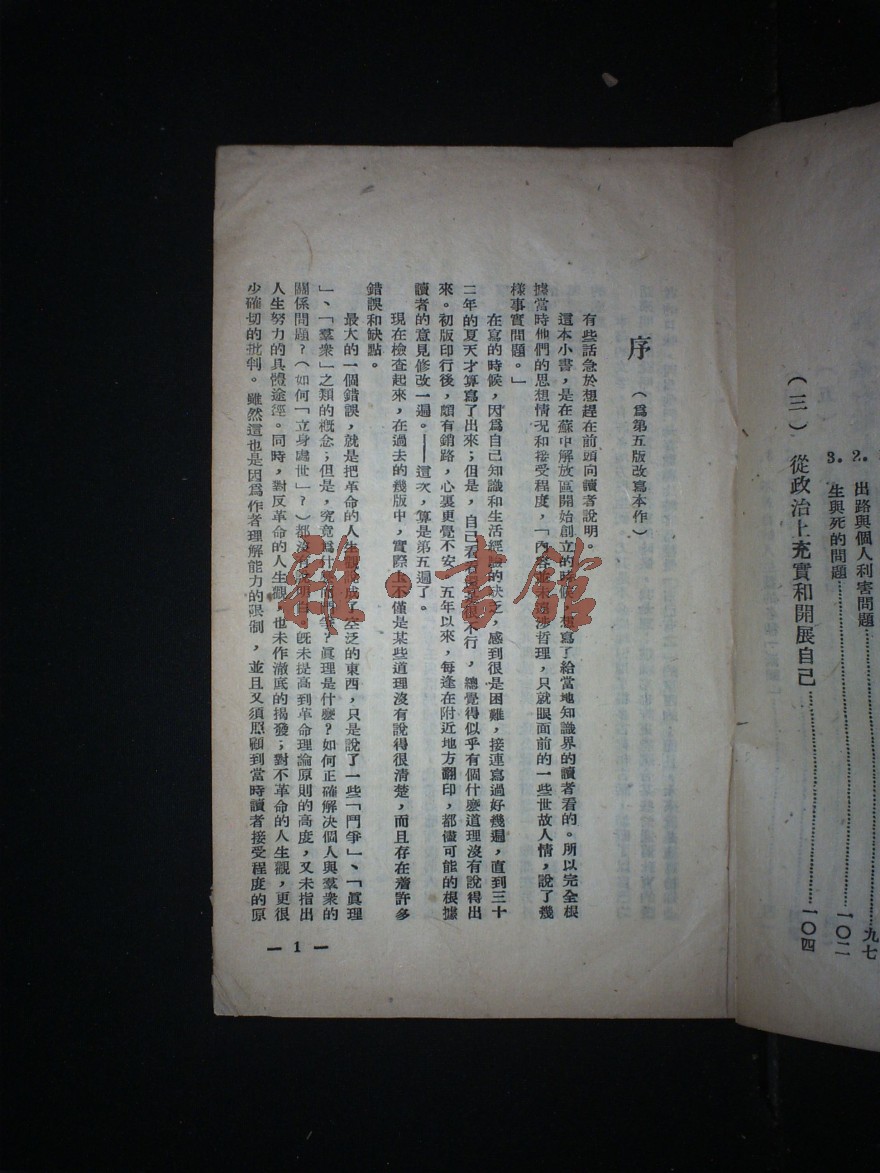 2. 出路與個人利害問題……………九七
3. 生與死的問題……………一〇二
(三) 從政治上充實和開展自己……………一〇四
序 (爲第五版改寫本作)
有些話急於想趕在前頭向讀者說明。
這本小書，是在蘇中解放區開始創立的時候，想寫了給當地知識界的讀者看的。所以完全根
據當時他們的思想情况和接受程度，「內容並未經涉哲理，只就眼面前的一些世故人情，說了幾
樣事實問題。」
在寫的時候，因爲自己知識和生活經驗的缺乏，感到很是困難，接連寫過好幾遍，直到三十
二年的夏天才算寫了出來；但是，自己看看還是很不行，總覺得似乎有個什麼道理沒有說得出
來。初版印行後，頗有銷路，心裏更覺不安。五年以來，每逢在附近地方翻印，都儘可能的根據
讀者的意見修改一遍。——這次，算是第五遍了。
現在檢查起來，在過去的幾版中，實際上不僅是某些道理沒有說得很清楚，而且存在着許多
錯誤和缺點。
最大的一個錯誤，就是把革命的人生觀說成了空泛的東西，只是說了一些「鬥爭」、「眞理
」、「羣衆」之類的概念；但是，究竟爲什麼而鬥爭？眞理是什麼？如何正確解決個人與羣衆的
關係問題？(如何「立身處世」？)都沒有說明白。既未提高到革命理論原則的高度，又未指出
人生努力的具體途徑。同時，對反革命的人生觀，也未作澈底的揭發；對不革命的人生觀，更很
少確切的批判。雖然這也是因爲作者理解能力的限制，並且又須照顧到當時讀者接受程度的原
— 1 —
雜·書館